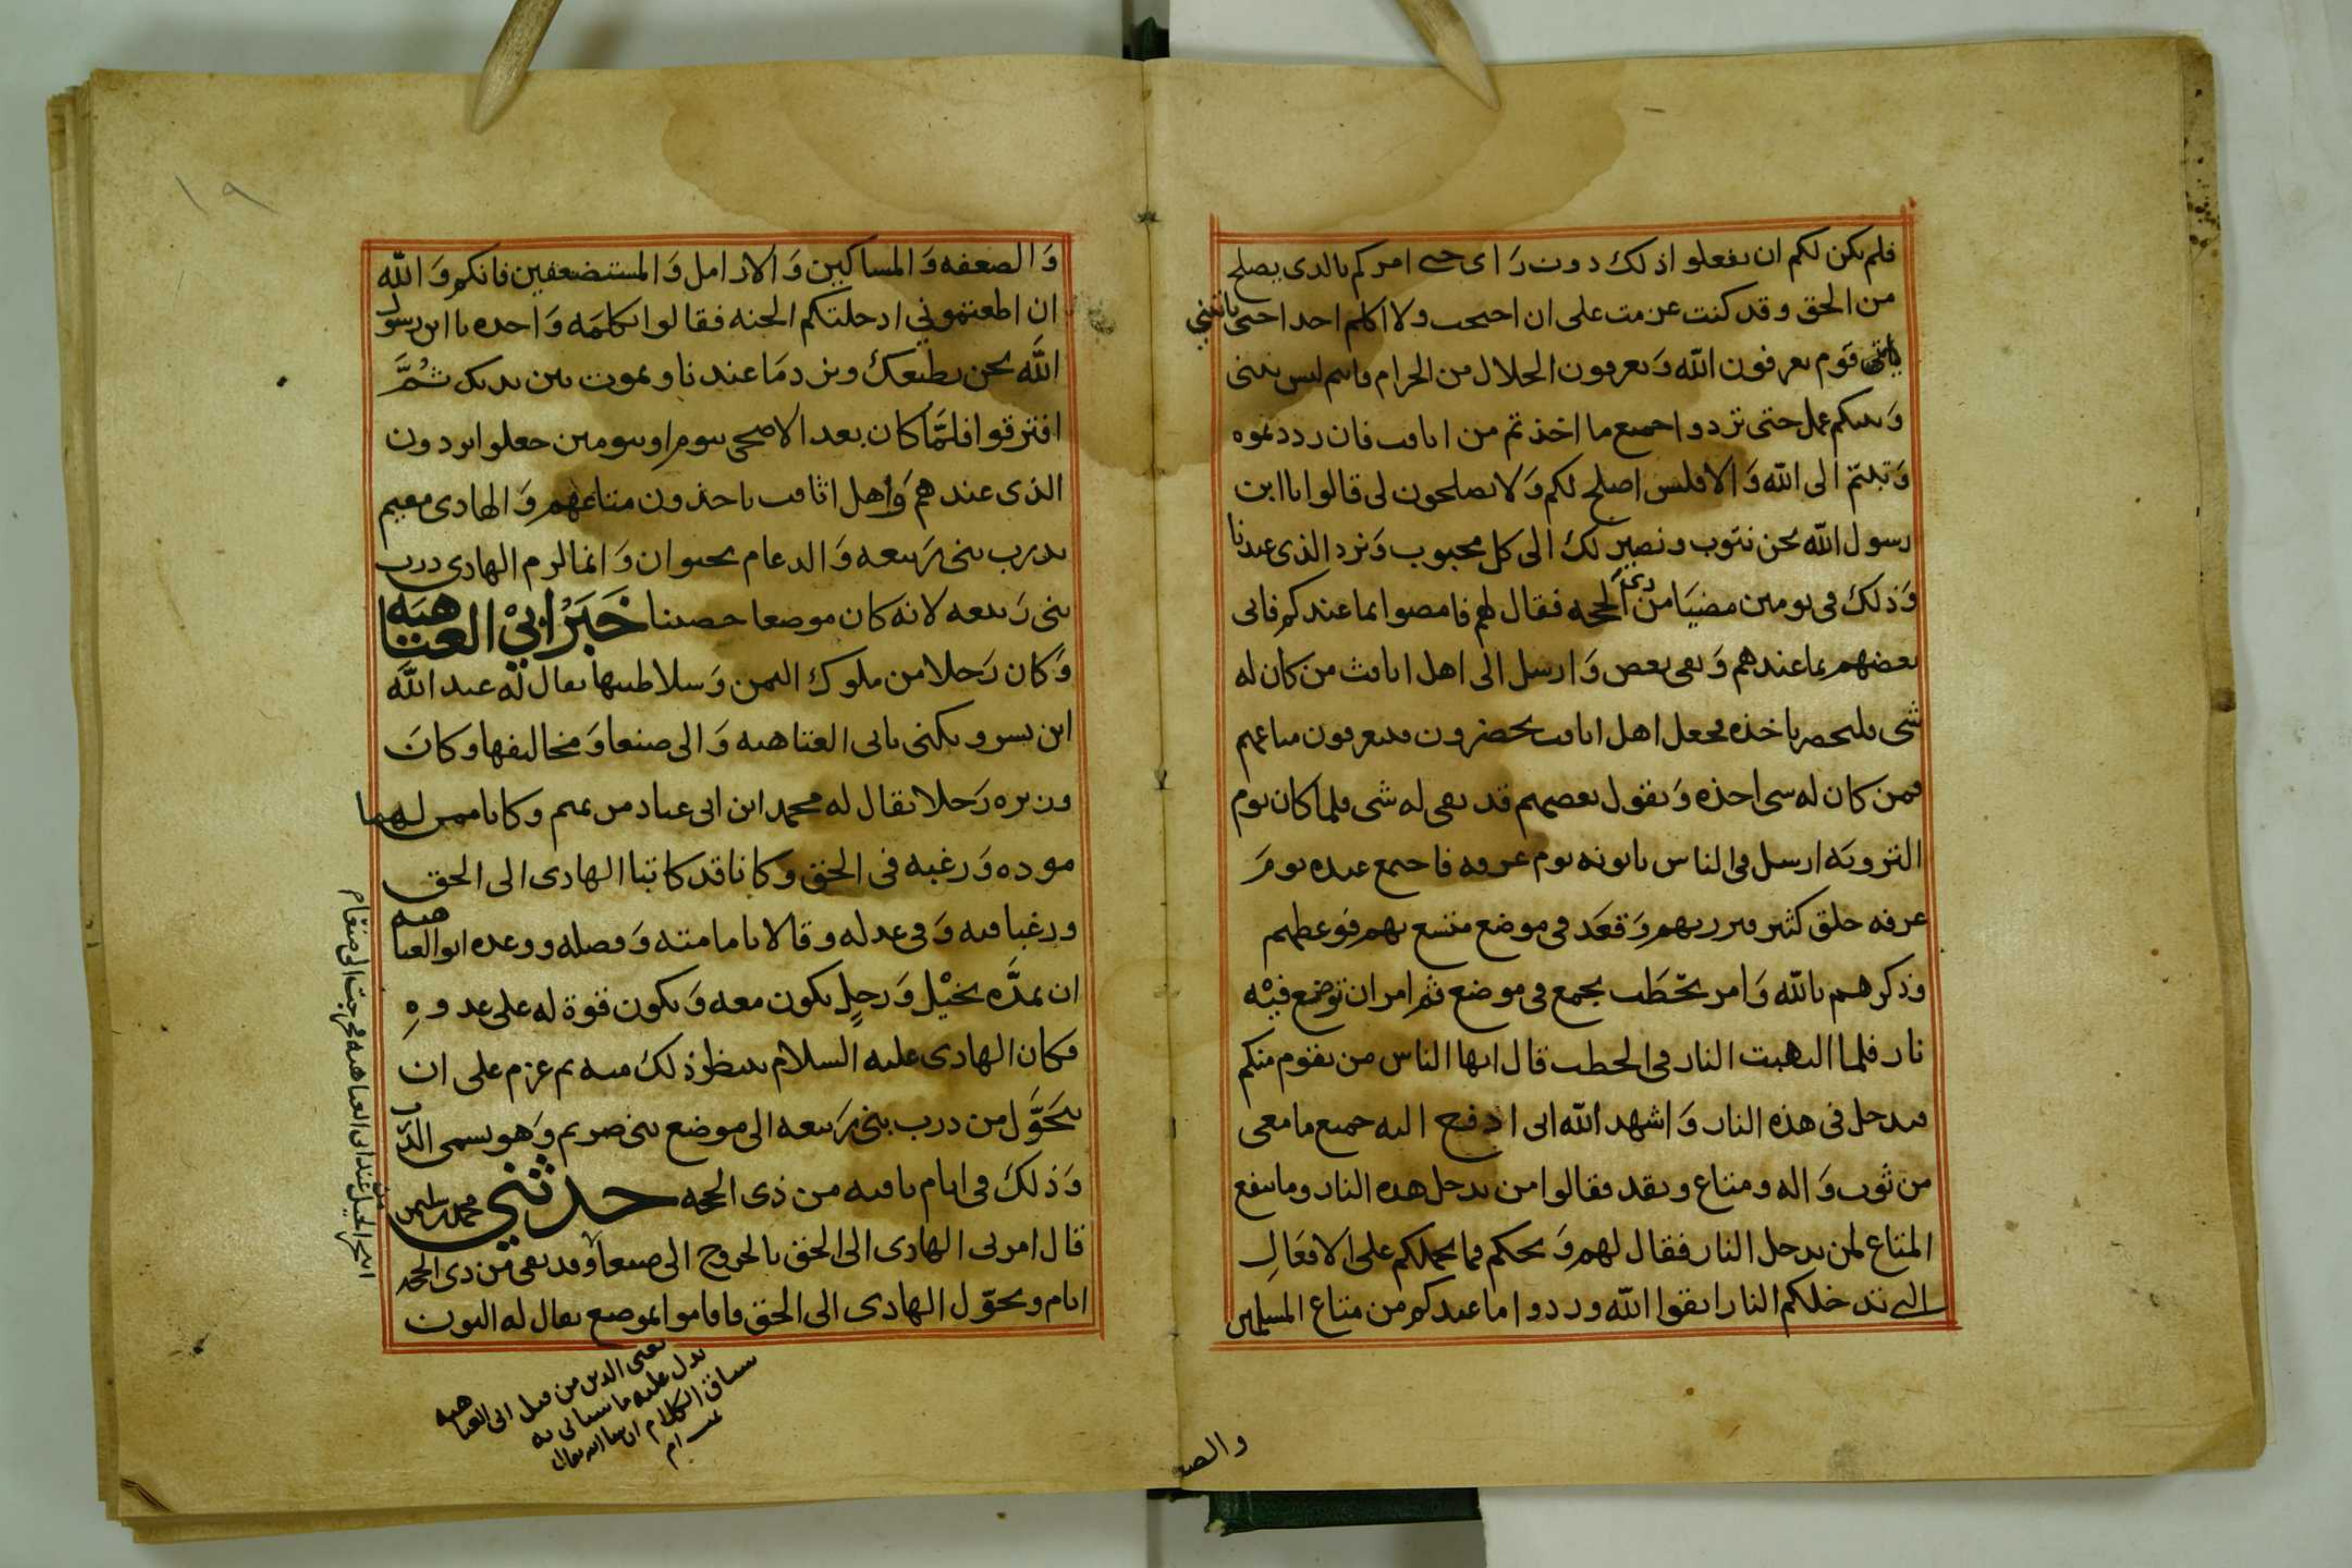 فلم يكن لكم ان تفعلوا ذلك دون راى حى امركم بالدى يصلح
من الحق وقد كنت عزمت على ان احتجب ولا اكلم احدا حتى ياتينى
ياتى قوم يعرفون الله وَيعرفون الحلال من الحرام فانهم ليس بينى
وَبينكم عمل حتى تردوا جميع ما اخذتم من اثافت فان رددتموه
وَتبتم الى الله وَالا فليس اصلح لكم وَلا تصلحون لى قالوا يا ابن
رسول الله نحن نتوب ونصير لك الى كل محبوب وَنرد الذى عندنا
وَذلك فى يومين مضيَا من ذى الحجه فقال لهم فامضوا بما عندكم فاتى
بعضهم بما عندهم وَبقى بعض وَارسل الى اهل اثافت من كان له
شى فليحضر ياخذه فجعل اهل اثافت يحضرون فيعرفون متاعهم
فمن كان له شى اخذه وَيقول بعضهم قد بقى له شى فلما كان يوم
الترويَه ارسل فى الناس ياتونه يوم عرفه فاجتمع عنده يومَ
عرفه خلق كثير فبرز بهم وَقعَد فى موضع متسع بهم فوعظهم
وذكرهم بالله وَامر بحطَب يجمع فى موضع ثم امر ان توضع فيْه
نار فلما التهبت النار فى الحطب قال ايها الناس من يقوم منكم
فيدخل فى هذه النار وَاشهد الله انى ادفع اليه جميع ما معى
من ثوب وَاله ومتاع ونقد فقالوا من يدخل هذه النار وما ينفع
المتاع لمن يدخل النار فقال لهم وَيحكم فما يحملكم على الافعَالِ
التى تدخلكم النار اتقوا الله وردوا ما عندكم من متاع المسلمين
والصـ
١٩
وَالضعفه وَالمساكين وَالارامل وَالمستضعفين فانكم وَالله
ان اطعتمونى ادخلتكم الجنه فقالوا بكلمَه وَاحده يا ابن رسول
الله نحن نطيعك ونرد مَا عندنا ونموت بين يديك ثُمَّ
افترقوا فلمَّا كان بعد الاضحى بيوم او بيومين جعلوا يردون
الذى عندهم وَاهل اثافت ياخذون متاعهم وَالهادى مقيم
بدرب بنى رَبيعه وَالدعام بحيوان وَانما لزم الهادى درب
بنى رَبيعه لانه كان موضعا حصينا خَبَرُ ابيْ العتاهيَه
وَكان رَجلا من ملوك اليمن وَسلاطينها يقال له عبد الله
ابن بسر ويكنى بابى العتاهيه وَالى صنعا وَمخاليفها وكانَ
وزيره رَجلا يقال له محمد ابن ابى عباد من تميم وكانا ممن لهما
موده وَرغبه فى الحق وكانا قد كاتبا الهادى الى الحق
ورغبا فيه وَفى عدله وقالا بامامته وَفضله ووعده ابو العتاهيه
ان يمدَّه بخيْل وَرجلٍ يكون معه وَيكون قوة له على عدوهِ
فكان الهادى عليه السلام ينتظر ذلك منه ثم عزم على ان
يتحَوَّل من درب بنى رَبيعه الى موضع بنى صريم وَهو يسمى الدرب
وَذلك فى ايام باقيه من ذى الحجه حدثني محمد بن سليمن
قال امرنى الهادى الى الحق بالخروج الى صنعا وَقد بقى من ذى الحجه
ايام وتحوّل الهادى الى الحق فاقاموا بموضع يقال له البون
انجر الخيل عند ابى العتاهيه فخرجت الى صنعا
يعنى الذين من قبل ابى العتاهيه
يدل عليه ما سياتى به
سياق الكلام ان شا الله تعالى